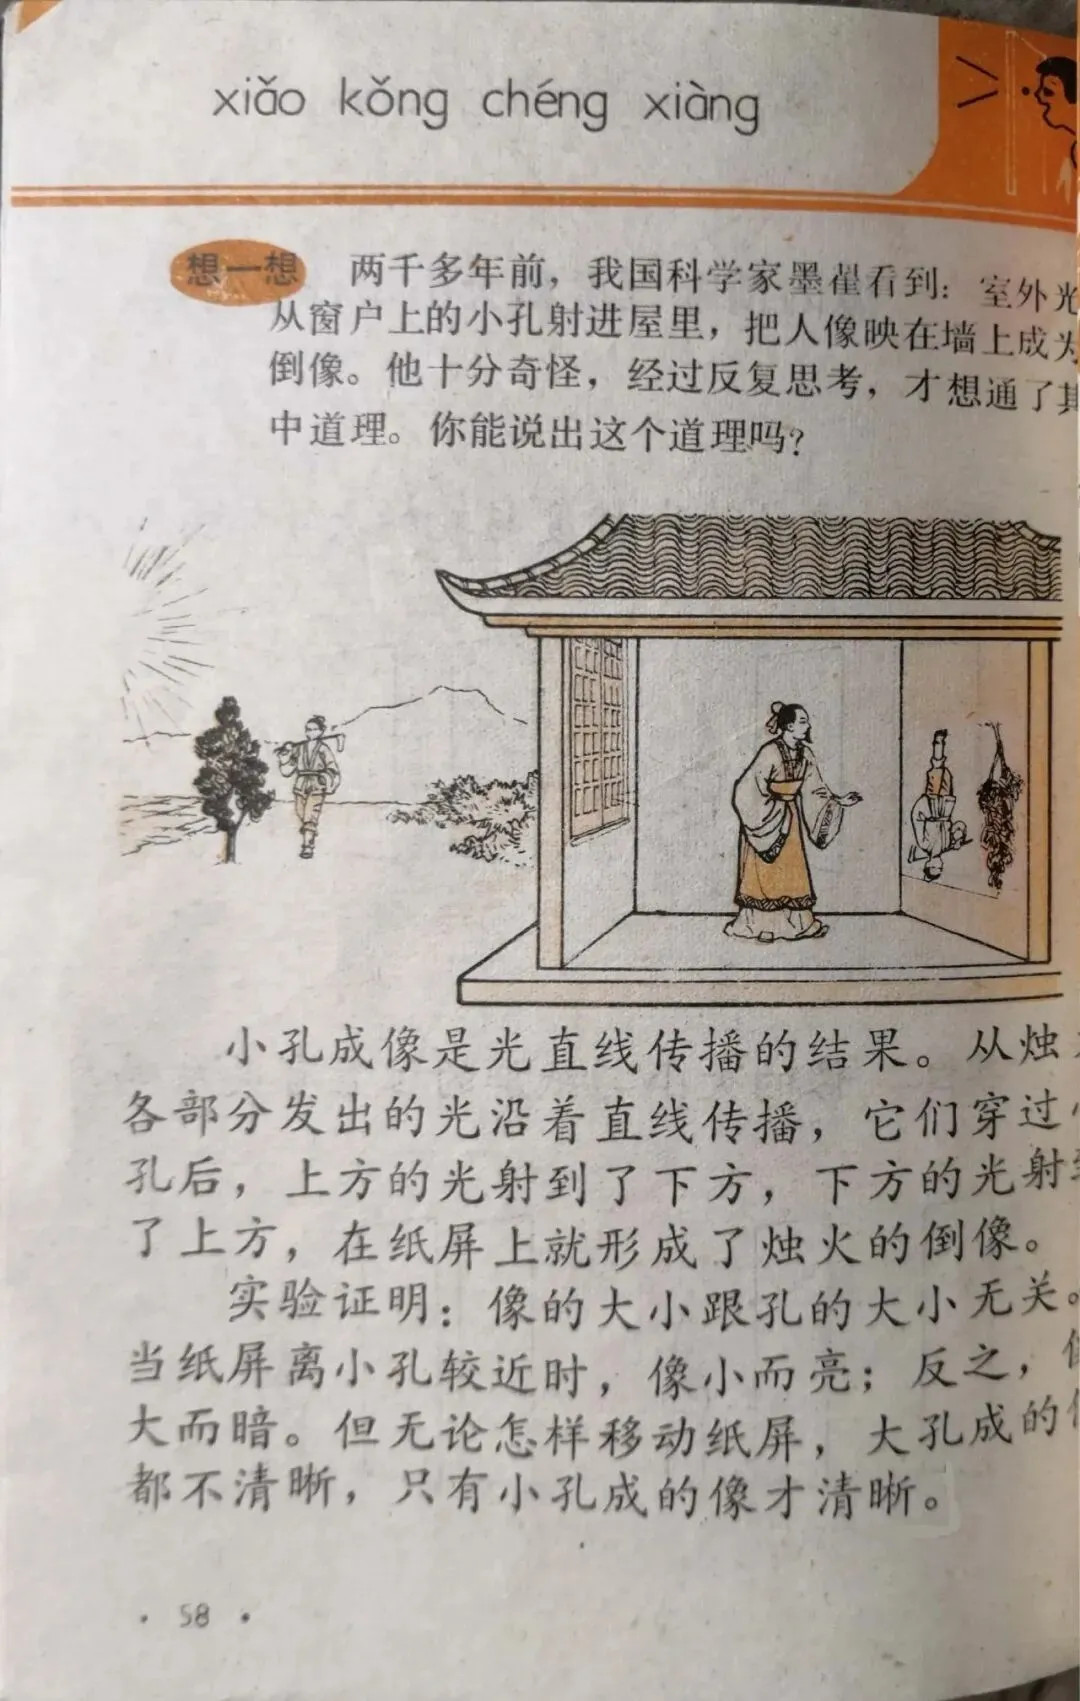 xiǎo kǒng chéng xiàng
想一想
两千多年前，我国科学家墨翟看到：室外光
从窗户上的小孔射进屋里，把人像映在墙上成为
倒像。他十分奇怪，经过反复思考，才想通了其
中道理。你能说出这个道理吗？
小孔成像是光直线传播的结果。从烛
各部分发出的光沿着直线传播，它们穿过
孔后，上方的光射到了下方，下方的光射到
了上方，在纸屏上就形成了烛火的倒像。
实验证明：像的大小跟孔的大小无关。
当纸屏离小孔较近时，像小而亮；反之，
大而暗。但无论怎样移动纸屏，大孔成的
都不清晰，只有小孔成的像才清晰。
· 58 ·